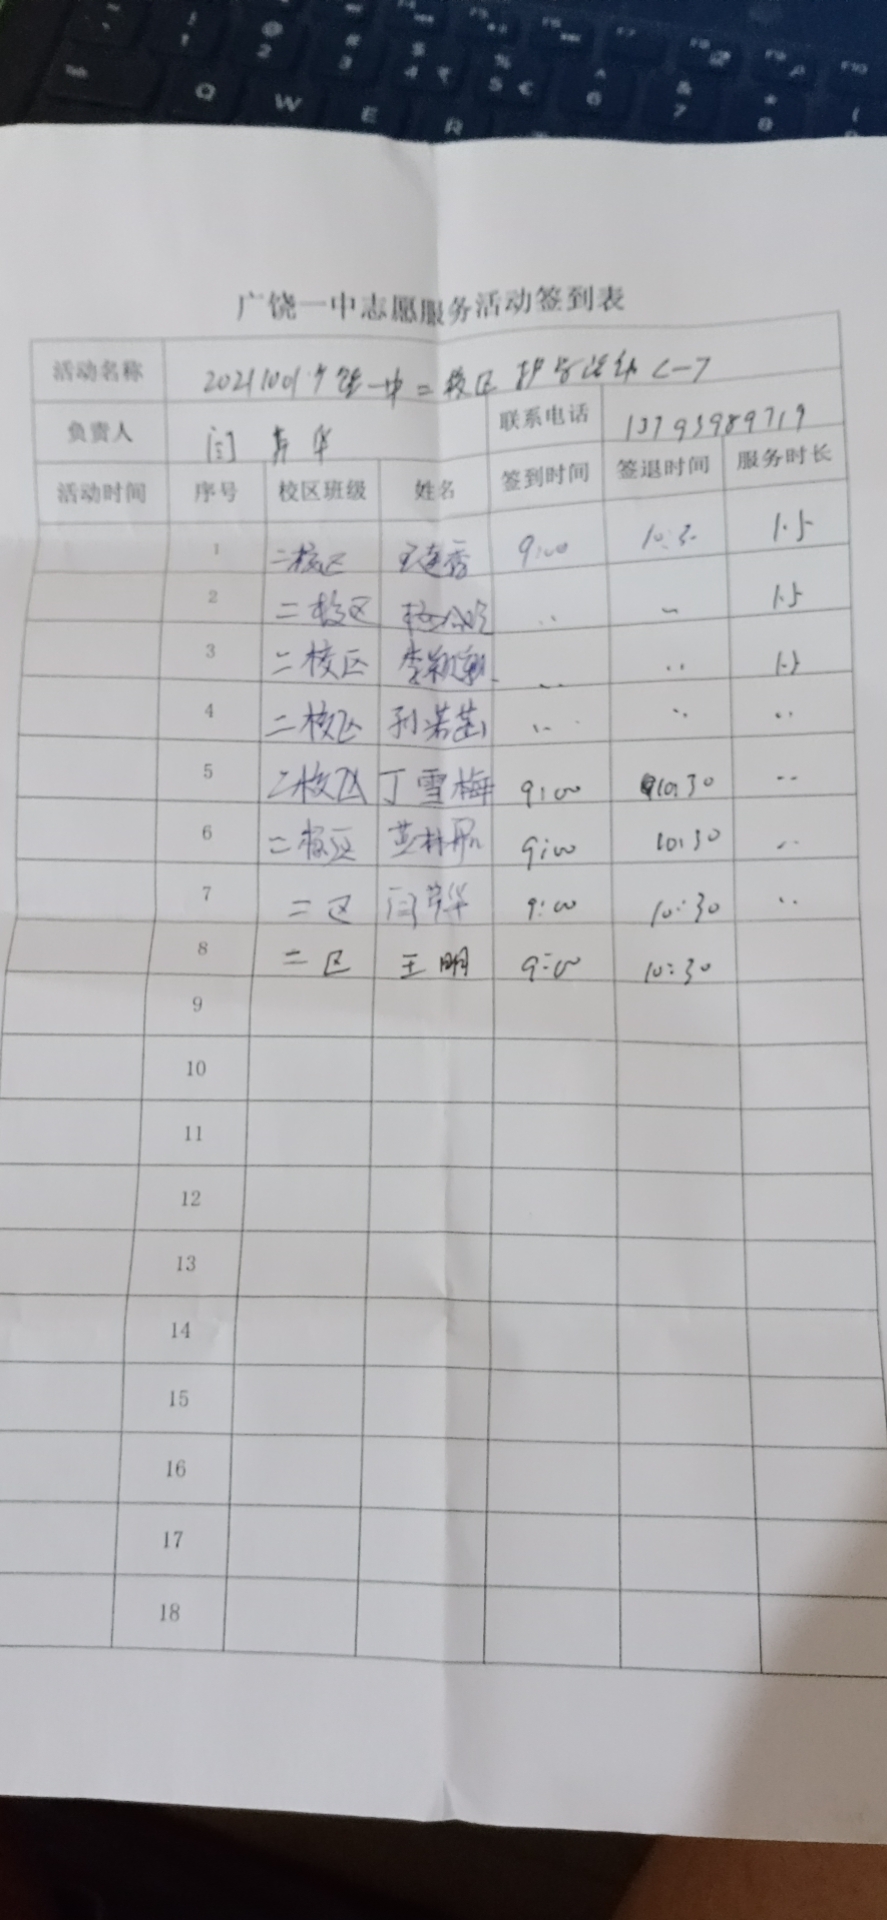 Tab Q W E R
广饶一中志愿服务活动签到表
活动名称 20211001广饶一中二校区护学活动 C-7
负责人 闫 华 联系电话 13793989719
活动时间 序号 校区班级 姓名 签到时间 签退时间 服务时长
1 二校区 王连香 9:00 10:30 1.5
2 二校区 1.5
3 二校区 李 1.5
4 二校区 孙若菡
5 二校区 丁雪梅 9:00 10:30
6 二校区 9:00 10:30
7 二区 闫 华 9:00 10:30
8 二区 王明 9:00 10:30
9
10
11
12
13
14
15
16
17
18